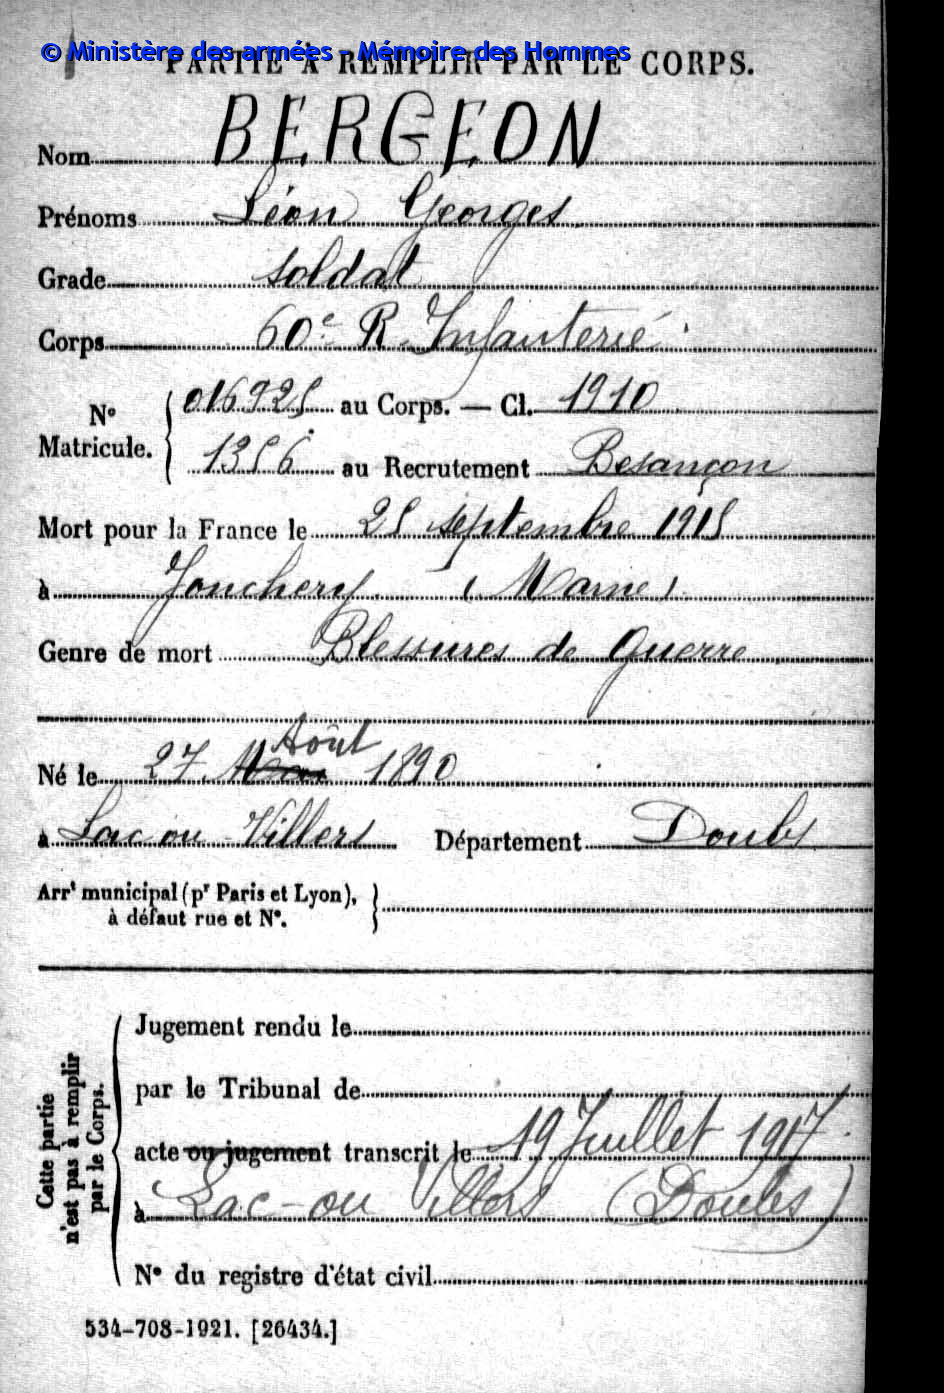 © Ministère des armées - Mémoire des Hommes
PARTIE À REMPLIR PAR LE CORPS.
Nom BERGEON
Prénoms Léon Georges
Grade soldat
Corps 60e R. Infanterie
N° Matricule. { 016925 au Corps. — Cl. 1910
1356 au Recrutement Besançon
Mort pour la France le 25 septembre 1915
à Jonchery (Marne)
Genre de mort Blessures de Guerre
Août
Né le 27 Mars 1890
à Lac ou Villers Département Doubs
Arrt municipal (pr Paris et Lyon), }
à défaut rue et N°.
Cette partie n'est pas à remplir par le Corps.
Jugement rendu le
par le Tribunal de
acte ou jugement transcrit le 19 Juillet 1917
à Lac-ou Villers (Doubs)
N° du registre d'état civil
534-708-1921. [26434.]